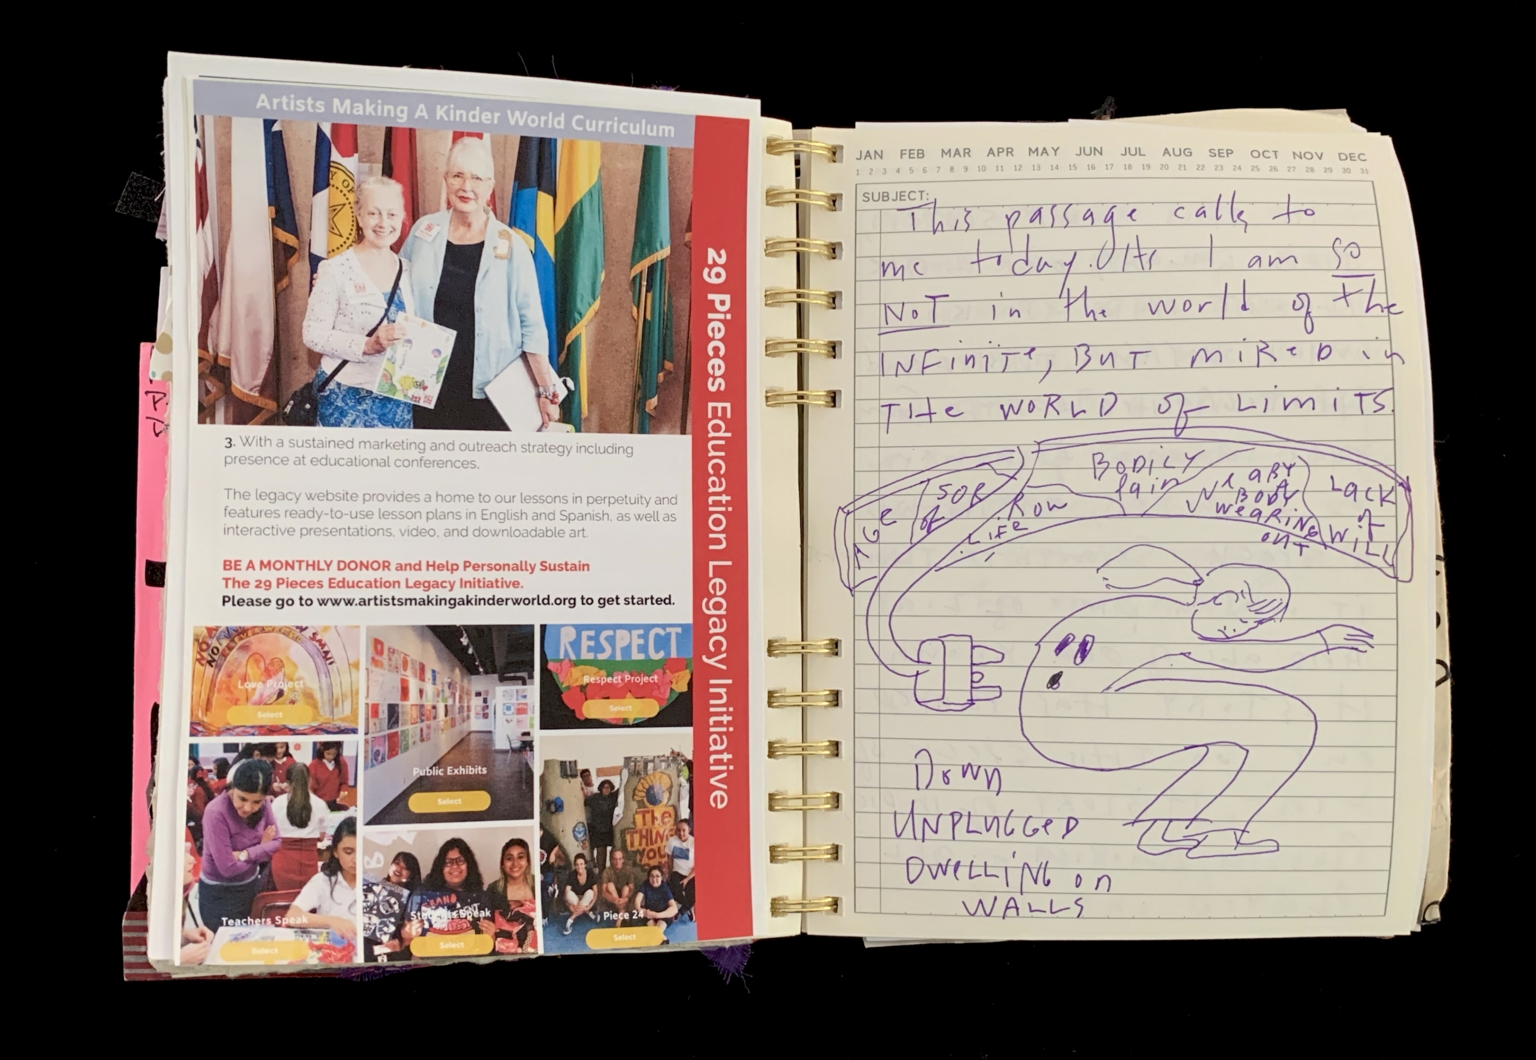 Artists Making A Kinder World Curriculum
29 Pieces Education Legacy Initiative
3. With a sustained marketing and outreach strategy including
presence at educational conferences.
The legacy website provides a home to our lessons in perpetuity and
features ready-to-use lesson plans in English and Spanish, as well as
interactive presentations, video, and downloadable art.
BE A MONTHLY DONOR and Help Personally Sustain
The 29 Pieces Education Legacy Initiative.
Please go to www.artistsmakingakinderworld.org to get started.
Love Project
Select
Public Exhibits
Select
RESPECT
Respect Project
Select
Teachers Speak
Select
Students Speak
Select
The
THING
YOU
Piece 24
Select
JAN FEB MAR APR MAY JUN JUL AUG SEP OCT NOV DEC
1 2 3 4 5 6 7 8 9 10 11 12 13 14 15 16 17 18 19 20 21 22 23 24 25 26 27 28 29 30 31
SUBJECT:
This passage calls to
me today. I am so
NOT in the world of the
INFinite, BUT MIRED in
THe WORLD of LIMITS.
AGe
SOR
of
Row
LIFE
BODILY
Pain
WeARY
BODY
WeARING
OUT
LACK
of
WILL
Down
UNPLUGGED
DWELLING on
WALLS